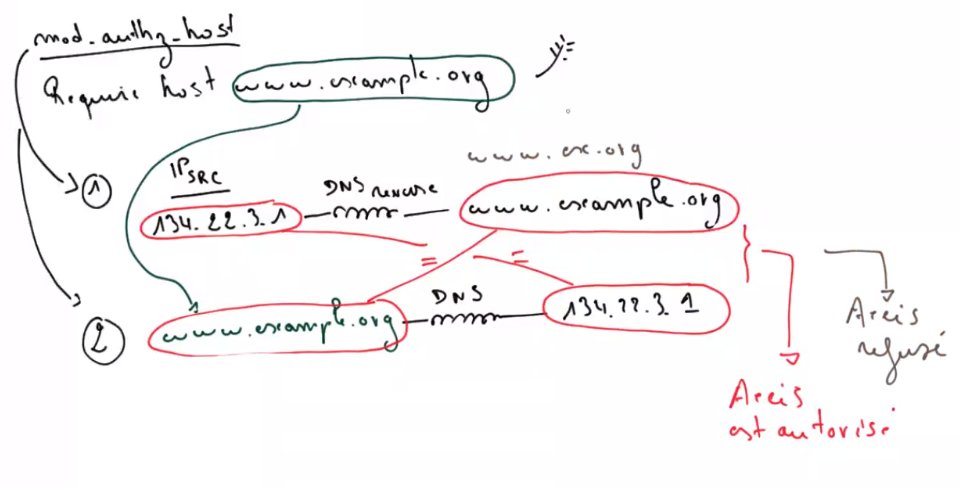 mod_authz_host
Require host www.example.org
www.ex.org
IP SRC
①
134.22.3.1
DNS reverse
www.example.org
=
=
②
www.example.org
DNS
134.22.3.1
Accès
refusé
Accès
est autorisé